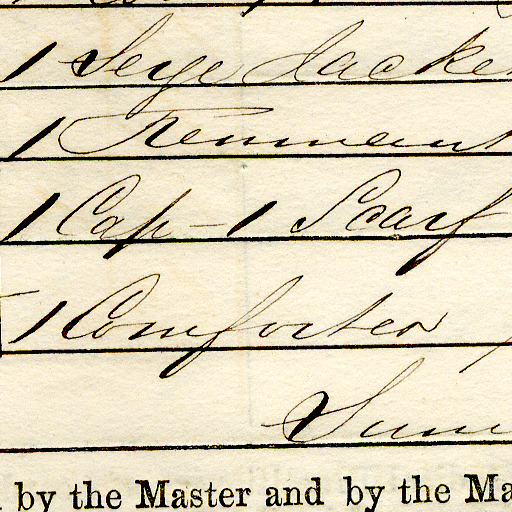 1 Serge Jacket
1 Remnant
1 Cap - 1 Scarf
1 Comforter
by the Master and by the Ma